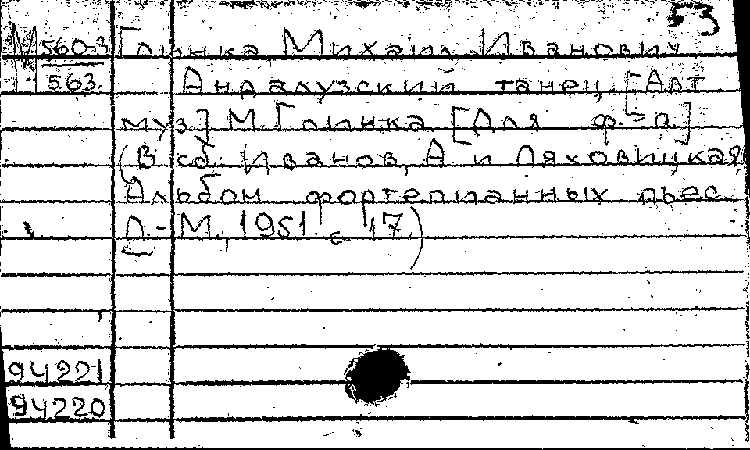 М 560-3 Глинка, Михаил Иванович
563. Андалузский танец. [Авт
муз.] М. Глинка [Для ф.-п.]
(В сб. Иванов, А и Ляховицкая
Альбом фортепианных пьес
Л.-М., 1951 с 17.)
94221
94220